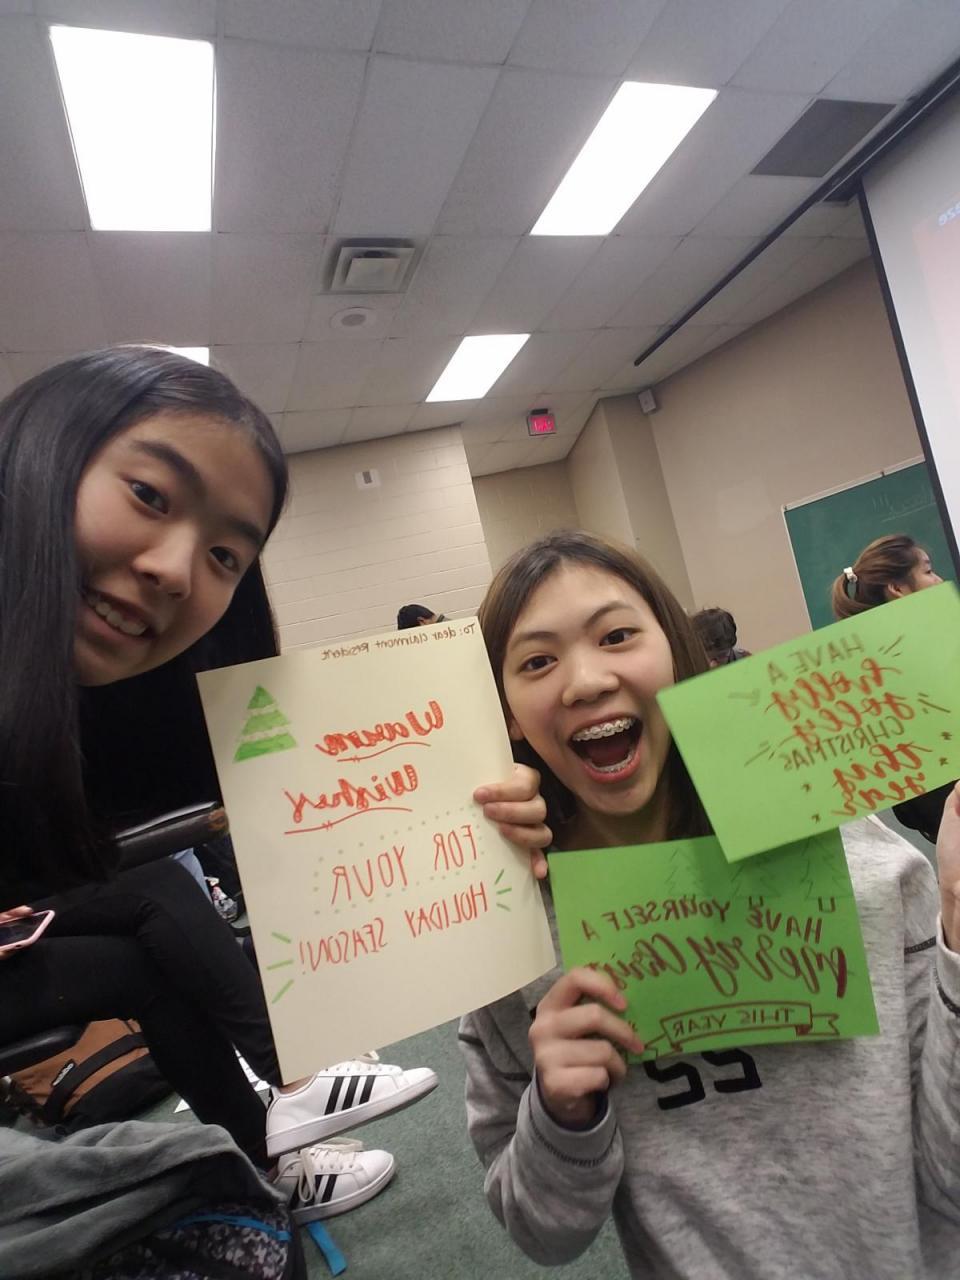 To: dear clairmont resident
Warm
Wishes
FOR YOUR
HOLIDAY SEASON!
HAVE A
holly
jolly
CHRISTMAS
this
year
HAVE YOURSELF A
merry
THIS YEAR